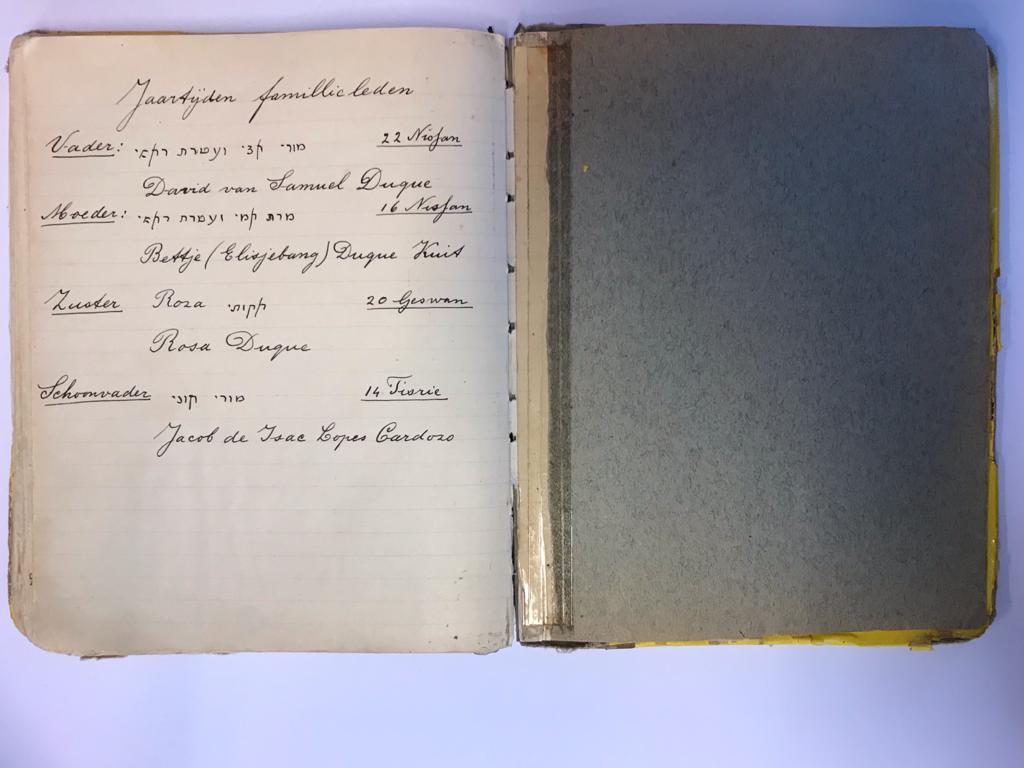 Jaartijden famillieleden
Vader: מורי אבי ועטרת ראשי 22 Nissan
David van Samuel Duque
Moeder: מרת אמי ועטרת ראשי 16 Nissan
Bettje (Elisjebang) Duque Kuit
Zuster Roza אחותי 20 Geswan
Rosa Duque
Schoonvader מורי חוני 14 Tisrie
Jacob de Isac Lopes Cardozo